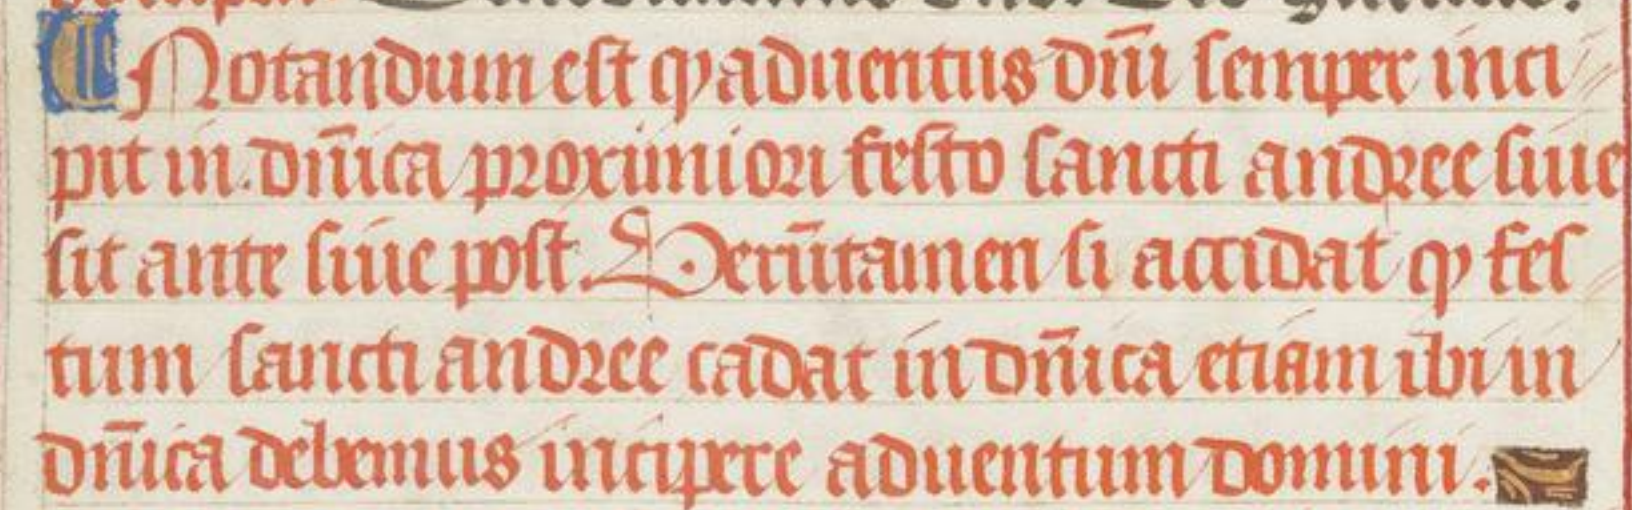 ¶ Notandum est ꝙ aduentus dñi semper inci
pit in dñica proximiori festo sancti andree siue
sit ante siue post. Verūtamen si accidat ꝙ fes
tum sancti andree cadat in dñica etiam ibi in
dñica debemus incipere aduentum domini.